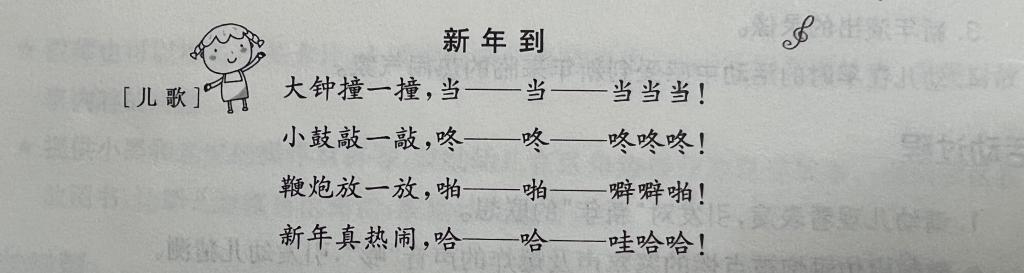 新年到
[儿歌]
大钟撞一撞,当——当——当当当!
小鼓敲一敲,咚——咚——咚咚咚!
鞭炮放一放,啪——啪——噼噼啪!
新年真热闹,哈——哈——哇哈哈!